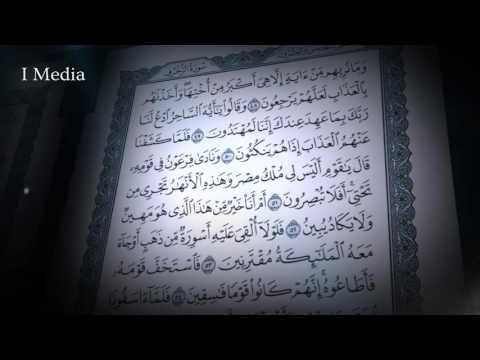 I Media
سورة الزخرف
وَمَا نُرِيهِم مِّنْ ءَايَةٍ إِلَّا هِىَ أَكْبَرُ مِنْ أُخْتِهَا وَأَخَذْنَٰهُم
بِٱلْعَذَابِ لَعَلَّهُمْ يَرْجِعُونَ ٤٨ وَقَالُوا۟ يَٰٓأَيُّهَ ٱلسَّاحِرُ ٱدْعُ لَنَا
رَبَّكَ بِمَا عَهِدَ عِندَكَ إِنَّنَا لَمُهْتَدُونَ ٤٩ فَلَمَّا كَشَفْنَا
عَنْهُمُ ٱلْعَذَابَ إِذَا هُمْ يَنكُثُونَ ٥٠ وَنَادَىٰ فِرْعَوْنُ فِى قَوْمِهِۦ
قَالَ يَٰقَوْمِ أَلَيْسَ لِى مُلْكُ مِصْرَ وَهَٰذِهِ ٱلْأَنْهَٰرُ تَجْرِى مِن
تَحْتِىٓ أَفَلَا تُبْصِرُونَ ٥١ أَمْ أَنَا۠ خَيْرٌ مِّنْ هَٰذَا ٱلَّذِى هُوَ مَهِينٌ
وَلَا يَكَادُ يُبِينُ ٥٢ فَلَوْلَآ أُلْقِىَ عَلَيْهِ أَسْوِرَةٌ مِّن ذَهَبٍ أَوْ جَآءَ
مَعَهُ ٱلْمَلَٰٓئِكَةُ مُقْتَرِنِينَ ٥٣ فَٱسْتَخَفَّ قَوْمَهُۥ
فَأَطَاعُوهُ إِنَّهُمْ كَانُوا۟ قَوْمًا فَٰسِقِينَ ٥٤ فَلَمَّآ ءَاسَفُونَا